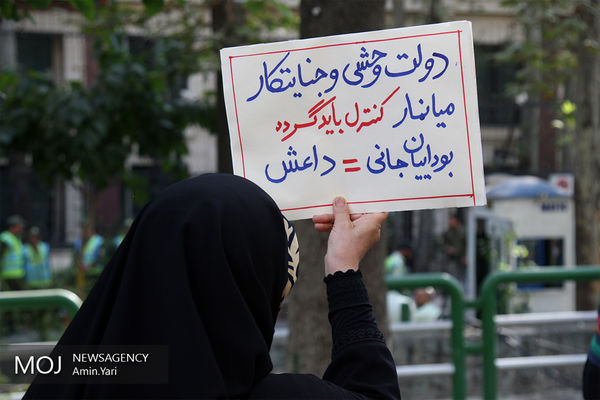 دولت وحشی و جنایتکار
میانمار کنترل باید گردد
بوداییان جانی = داعش
MOJ NEWSAGENCY
Amin.Yari